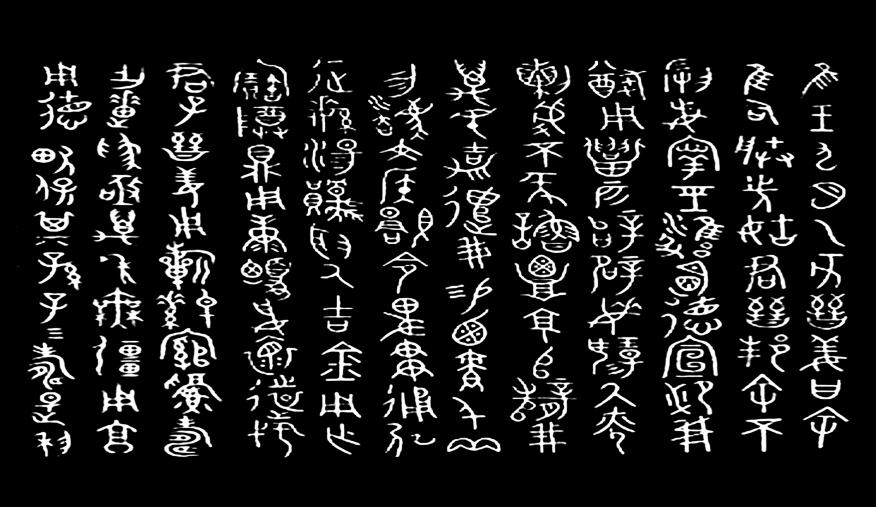 隹王九月乙亥晉姜曰余
隹司朕先姑君晉邦余不
叚妄寧巠雝明德宣卹我
猷用召匹辝辟每揚氒光
剌虔不㒸魯覃京𠂤辥我
萬民嘉遣我易鹵責千兩
勿灋文侯顯令卑貫通弘
征繁湯取氒吉金用乍
寶尊鼎用康柔妥懷遠
君子晉姜用祈綽綰眉壽
乍疐為亟萬年無疆用享
用德畯保其孫子三壽是利